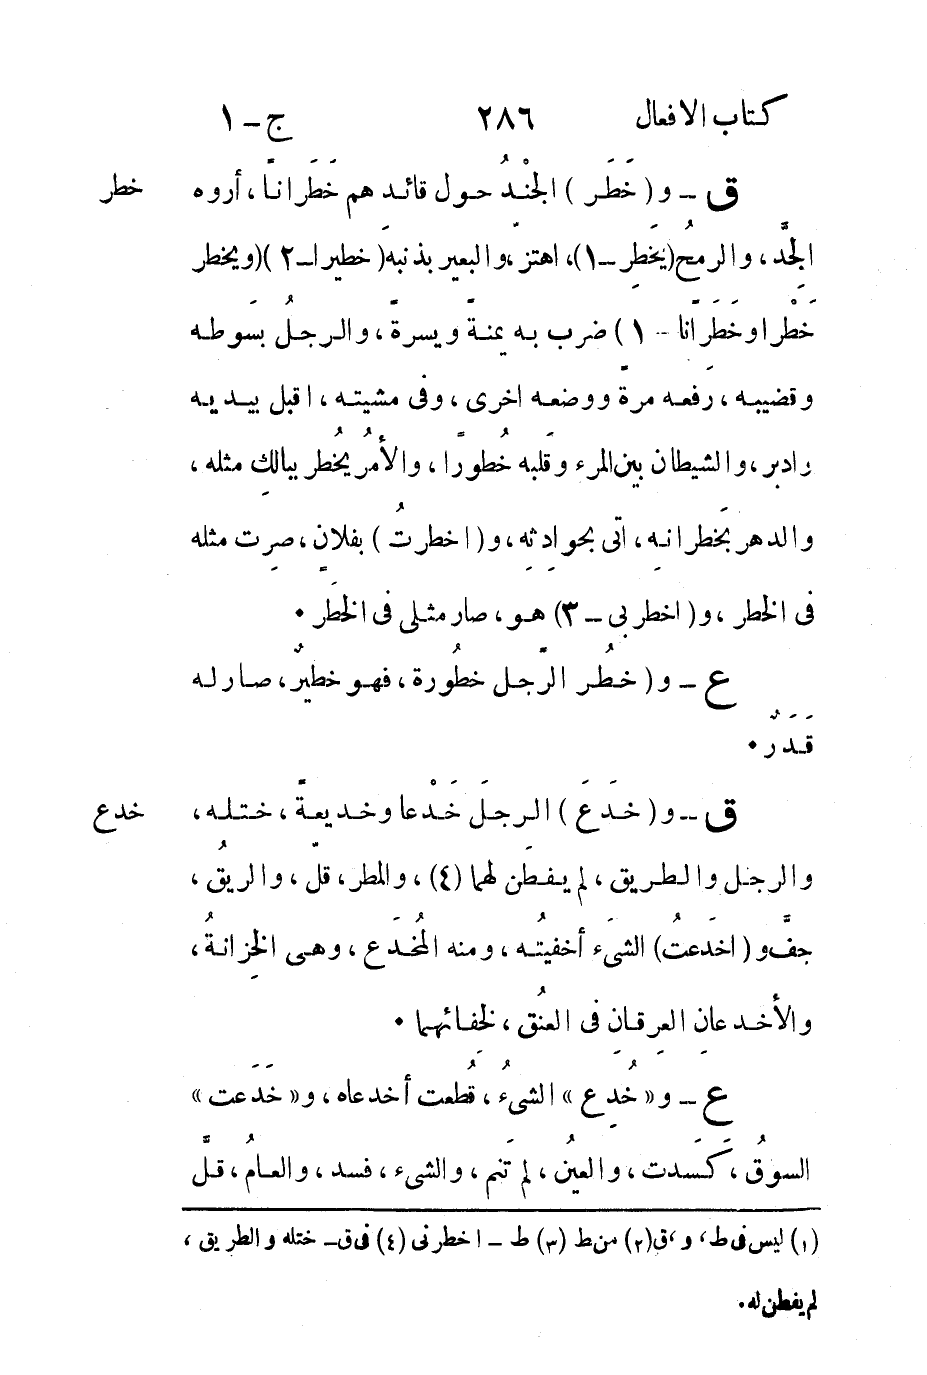 كتاب الافعال ٢٨٦ ج - ١
ق - و ( خَطَر ) الجنْدُ حول قائدهم خَطَراناً ، أروه خطر
الجِدَّ ، والرمحُ ( يَخطِر - ١ ) ، اهتز ، والبعير بذنبه ( خطيرا - ٢ ) ( ويخطر
خَطْرا وخَطَرانا - ١ ) ضرب به يمنةً ويسرةً ، والرجلُ بسَوطه
وقضيبه ، رفعه مرةً ووضعه اخرى ، وفى مشيته ، اقبل بيديه
وادبر ، والشيطان بين المرء وقلبه خُطورًا ، والأمرُ يخطُر ببالِك مثله ،
والدهر بخَطرانه ، اتى بحوادِثِه ، و ( اخطرتُ ) بفلانٍ ، صرِت مثله
فى الخطر ، و ( اخطر بى - ٣ ) هو ، صار مثلى فى الخَطَر .
ع - و ( خطُر الرّجل خطُورةً ، فهو خطيرٌ ، صار له
قَدَرٌ .
ق - و ( خدَعَ ) الرجلَ خَدْعا وخديعةً ، ختله ، خدع
والرجل والطريق ، لم يفطَن لهما (٤) ، والمطر ، قلّ ، والريقُ ،
جفَّ و ( اخدَعتُ ) الشىء أخفيتُه ، ومنه المُخدَع ، وهى الخِزانةُ ،
والأخدعانِ العِرقانِ فى العنُق ، لخِفائهما .
ع - و « خُدِع » الشىءُ ، قُطعت أخدعاه ، و « خَدَعت »
السوقُ ، كَسَدت ، والعينُ ، لم تنَم ، والشىء ، فسد ، والعامُ ، قلَّ
(١) ليس فى ط ، و ، ق (٢) من ط (٣) ط - اخطرنى (٤) فى ق - ختله والطريق ،
لم يفطن له .